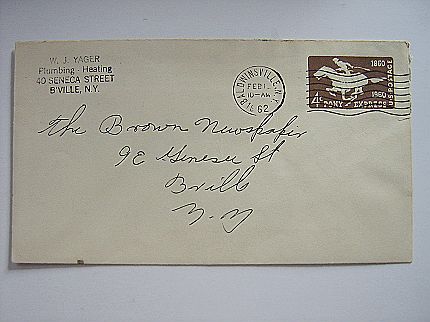 W. J. YAGER
Plumbing - Heating
40 SENECA STREET
B'VILLE, N.Y.
BALDWINSVILLE, N.Y.
FEB 1
10-AM
1962
1860
1960
U.S. POSTAGE
4¢ PONY EXPRESS
The Brown Newspaper
9 E Genesee St
Bville
N-Y